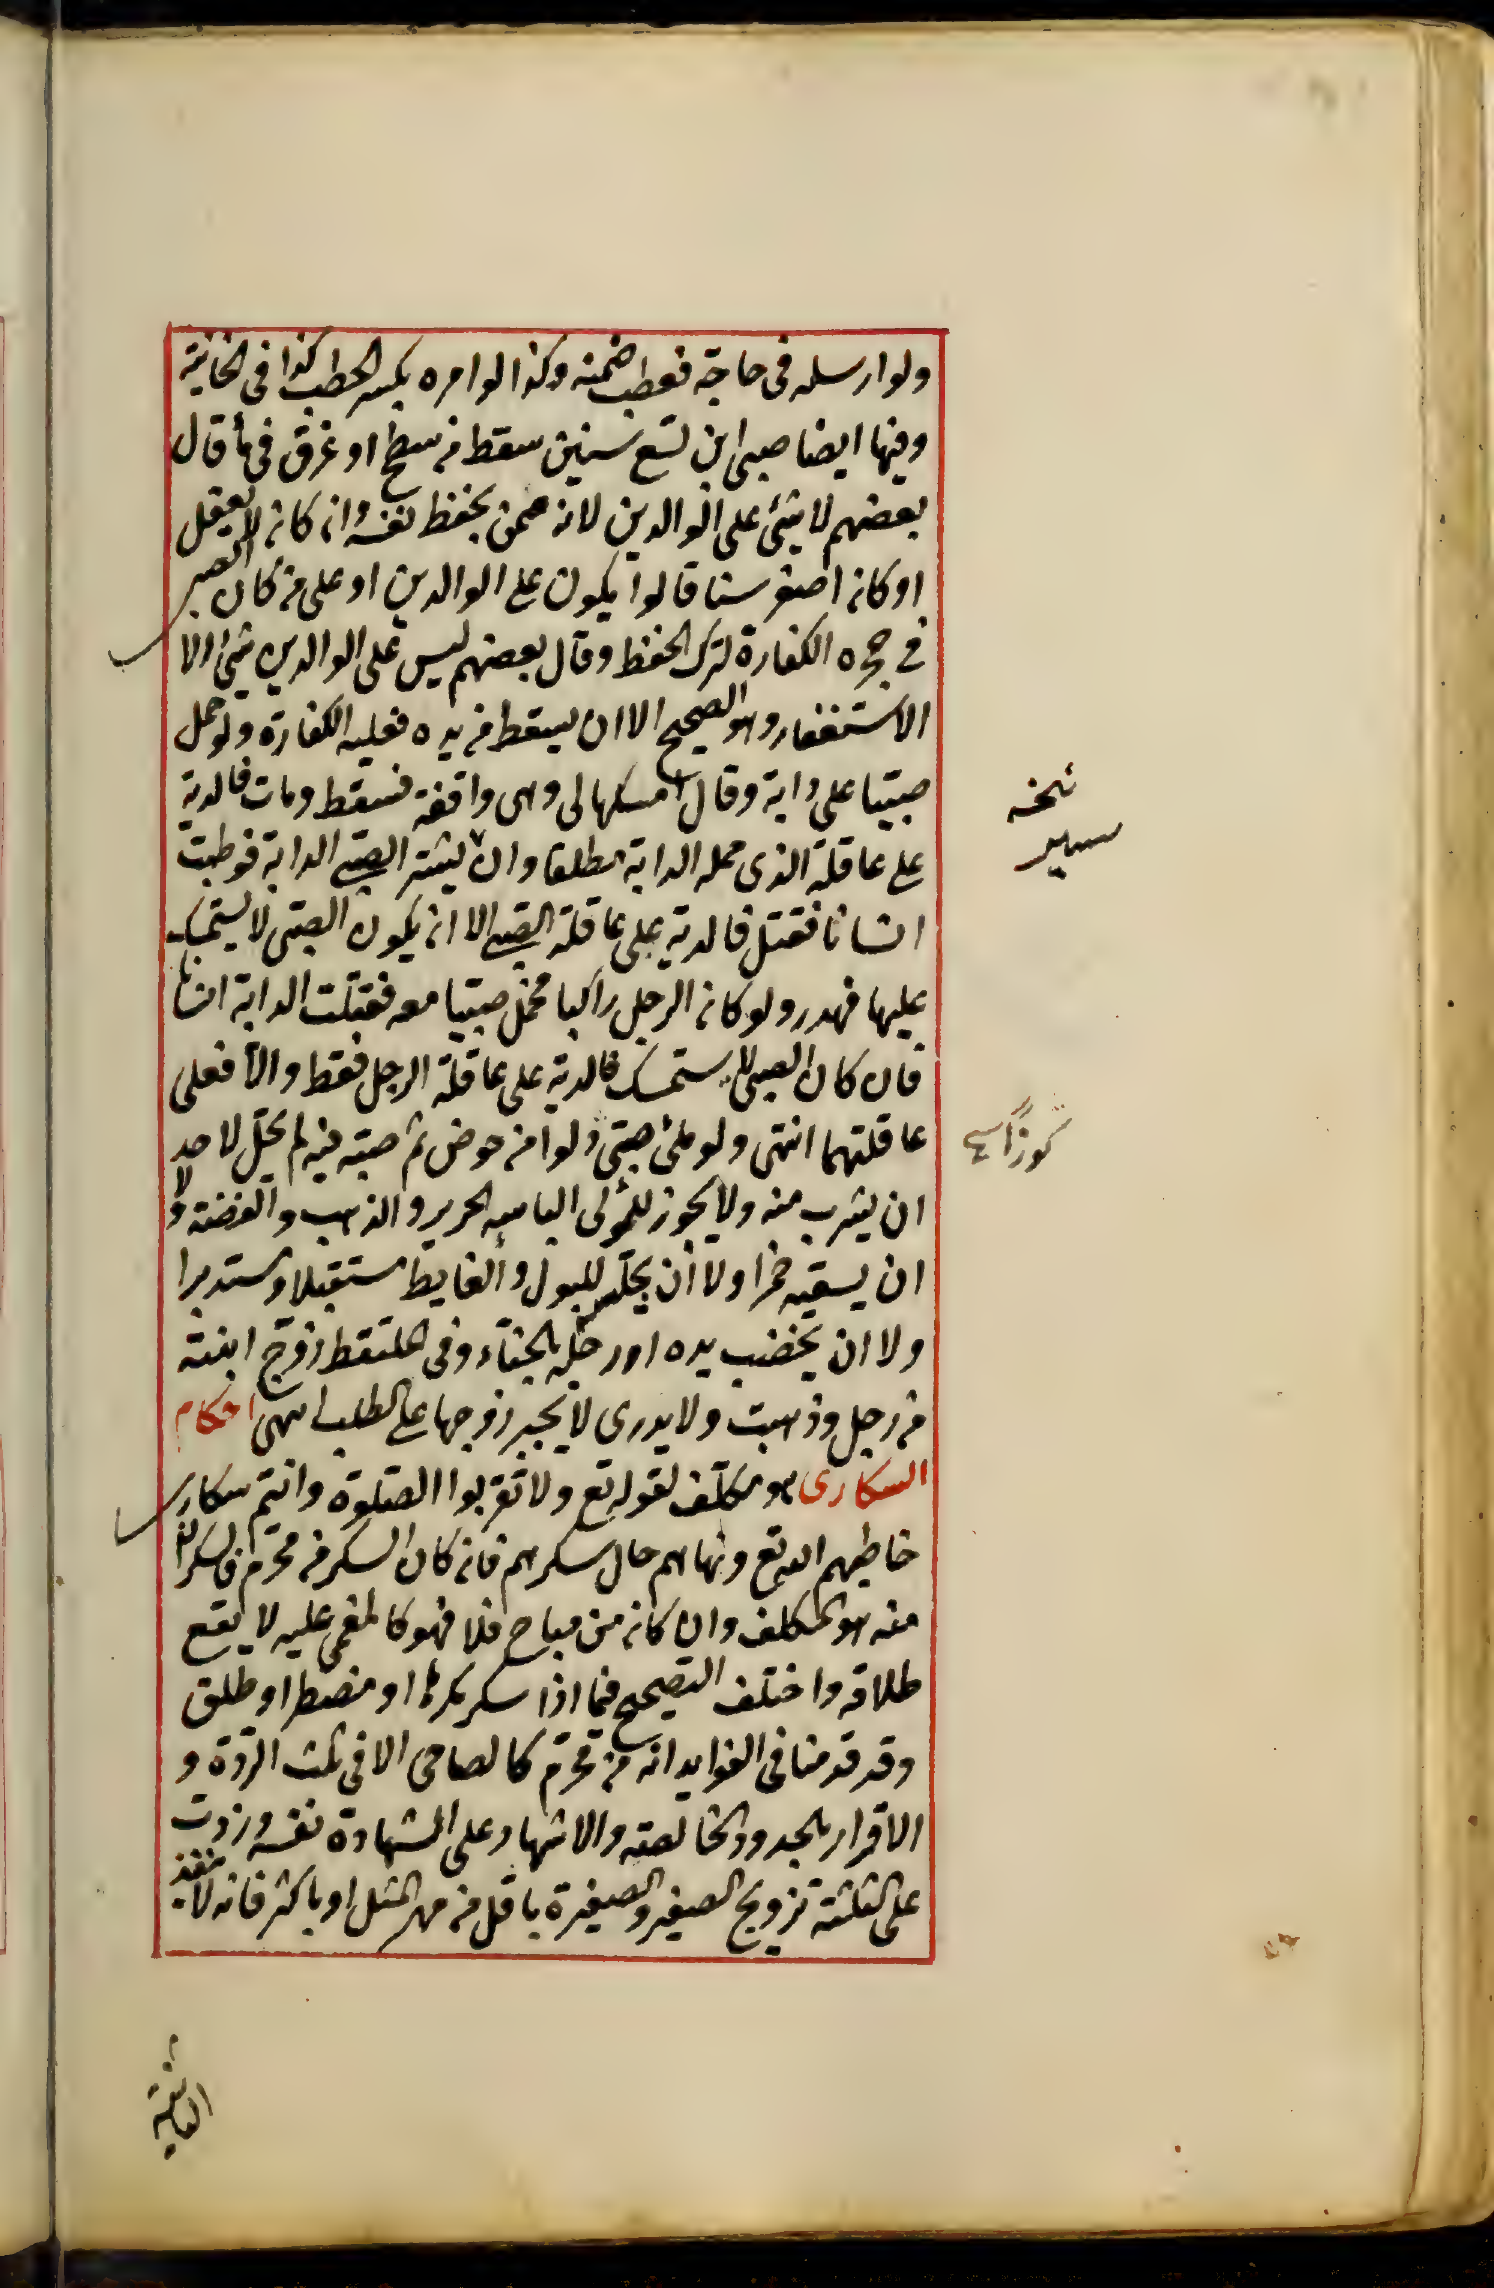 ولو ارسله فى حاجة فعطب ضمنه وكذا لو امره بكسر الحطب كذا فى الخانية
وفيها ايضا صبى ابن تسع سنين سقط من سطح او غرق فى ماء قال
بعضهم لا شئ على الوالدين لانه ممن يحفظ نفسه وان كان لا يعقل
او كان اصغر سنا قالوا يكون على الوالدين او على من كان الصبى
فى حجره الكفارة لترك الحفظ وقال بعضهم ليس على الوالدين شئ الا
الاستغفار وهو الصحيح الا ان يسقط من يده فعليه الكفارة ولو حمل
صبيا على دابة وقال امسكها لى وهى واقفة فسقط ومات فالدية
على عاقلة الذى حمله الدابة مطلقا وان الصبى الدابة فوطئت
انسانا فقتل فالدية على عاقلة الصبى الا ان يكون الصبى لا يستمسك
عليها فهدر ولو كان الرجل راكبا فحمل صبيا معه فقتلت الدابة انسانا
فان كان الصبى لا يستمسك فالدية على عاقلة الرجل فقط والا فعلى
عاقلتهما انتهى ولو ملئ صبى من حوض ثم صبه فيه لم يحل لاحد
ان يشرب منه ولا يجوز للمولى الباسه الحرير والذهب والفضة ولا
ان يسقيه خمرا ولا ان يجلسه للبول والغايط مستقبلا ومستدبرا
ولا ان يخضب يده او رجله بالحناء وفى الملتقط زوج ابنته
من رجل وذهبت ولا يدرى لا يجبر زوجها على الطلب انتهى احكام
السكارى هو مكلف لقوله تع ولا تقربوا الصلوة وانتم سكارى
خاطبهم الله تع ونهاهم حال سكرهم فان كان السكر من محرم فالسكران
منه هو المكلف وان كان من مباح فلا فهو كالمغمى عليه لا يقع
طلاقه واختلف التصحيح فيما اذا سكر مكرها او مضطرا وطلق
وقد قدمنا فى الفوايد انه من محرم كالصاحى الا فى ثلث الردة و
الاقرار بالحدود الخالصة والاشهاد على الشهادة نفسه وزدت
على الثلثة تزويج الصغير والصغيرة باقل من مهر المثل او باكثر فانه لا ينفذ
نسخه
كوزا
الثانية